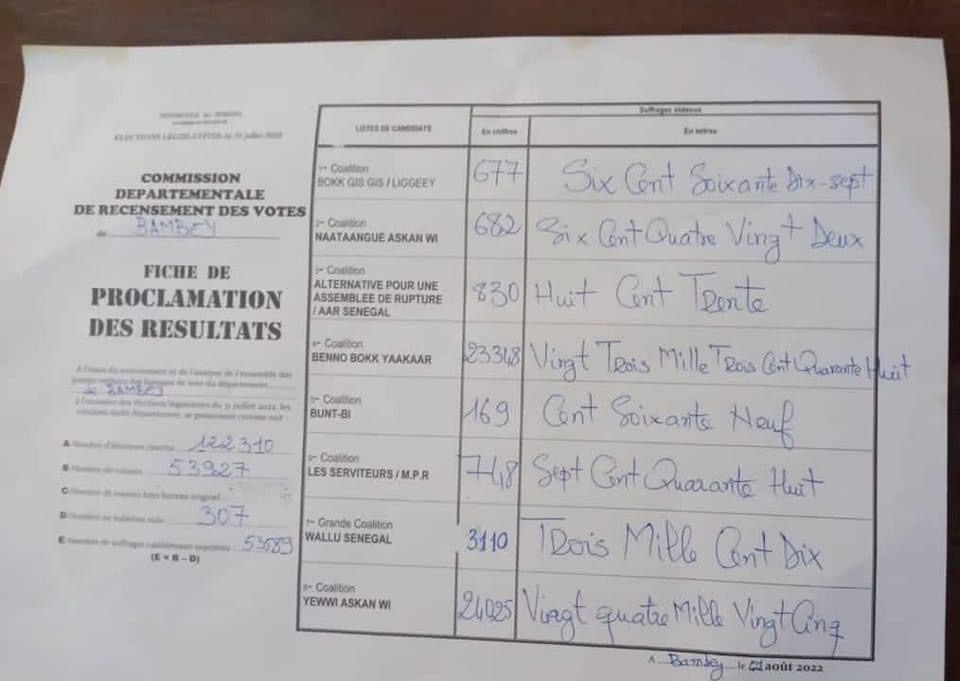 ELECTIONS LEGISLATIVES du 31 juillet 2022
COMMISSION
DEPARTEMENTALE
DE RECENSEMENT DES VOTES
de BAMBEY
FICHE DE
PROCLAMATION
DES RESULTATS
A l'issue du recensement et de l'analyse de l'ensemble des
de BAMBEY
à l'occasion des élections législatives du 31 juillet 2022, les
A Nombre d'électeurs inscrits 122310
B Nombre de votants 53927
C Nombre de votants hors bureau originel
D Nombre de bulletins nuls 307
E Nombre de suffrages valablement exprimés
(E = B - D)
Suffrages obtenus
LISTES DE CANDIDATS En chiffres En lettres
1- Coalition
BOKK GIS GIS / LIGGEEY 677 Six Cent Soixante Dix-sept
2- Coalition
NAATAANGUE ASKAN WI 682 Six Cent Quatre Vingt Deux
3- Coalition
ALTERNATIVE POUR UNE
ASSEMBLEE DE RUPTURE
/ AAR SENEGAL 830 Huit Cent Trente
4- Coalition
BENNO BOKK YAAKAAR 23348 Vingt Trois Mille Trois Cent Quarante Huit
5- Coalition
BUNT-BI 169 Cent Soixante Neuf
6- Coalition
LES SERVITEURS / M.P.R 748 Sept Cent Quarante Huit
7- Grande Coalition
WALLU SENEGAL 3110 Trois Mille Cent Dix
8- Coalition
YEWWI ASKAN WI 24025 Vingt quatre Mille Vingt Cinq
A Bambey le août 2022